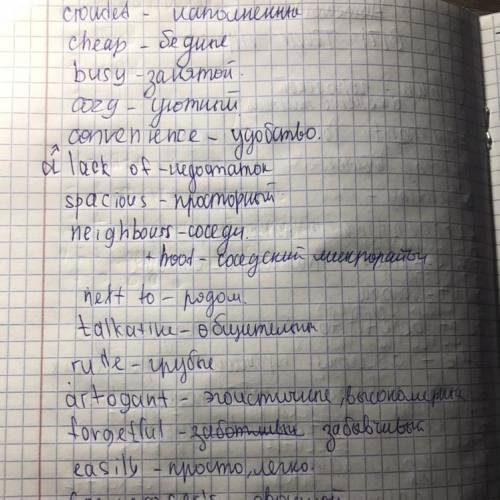 crowded - наполненны
cheap - бедные
busy - занятой.
cozy - уютный
convenience - удобство.
a lack of - недостаток
spacious - просторный
neighbours - соседи.
+ hood - соседский микрорайон
next to - рядом.
talkative - общительны
rude - грубые
arrogant - эгоистичные, высокомерны
forgetful - заботливые забывчивый
easily - просто, легко.